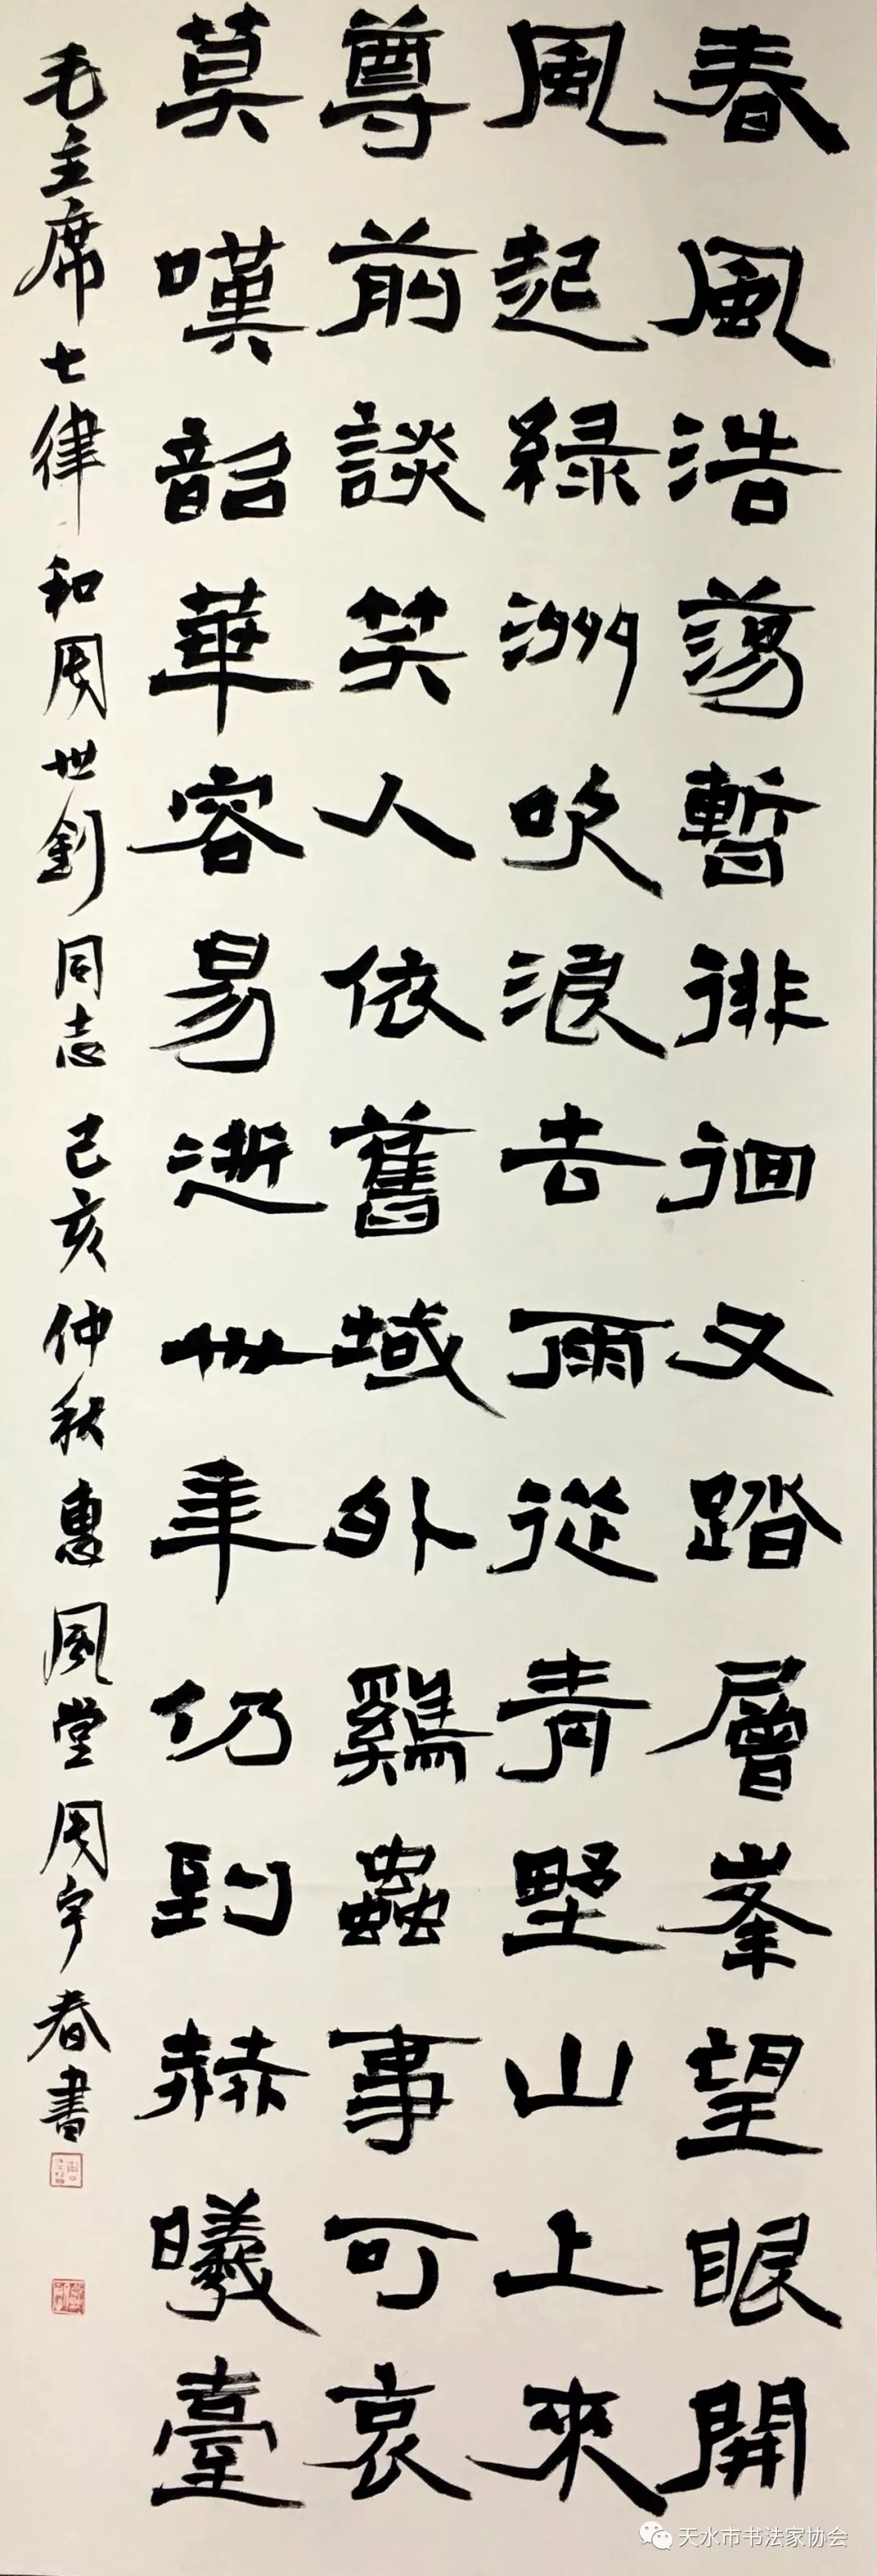 春風浩蕩暫徘徊又踏層峯望眼開
風起綠洲吹浪去雨從青墅山上來
尊前談笑人依舊域外鷄蟲事可哀
莫嘆韶華容易逝卅年仍到赫曦臺
毛主席七律和周世釗同志己亥仲秋惠風堂周宇春書
天水市书法家协会